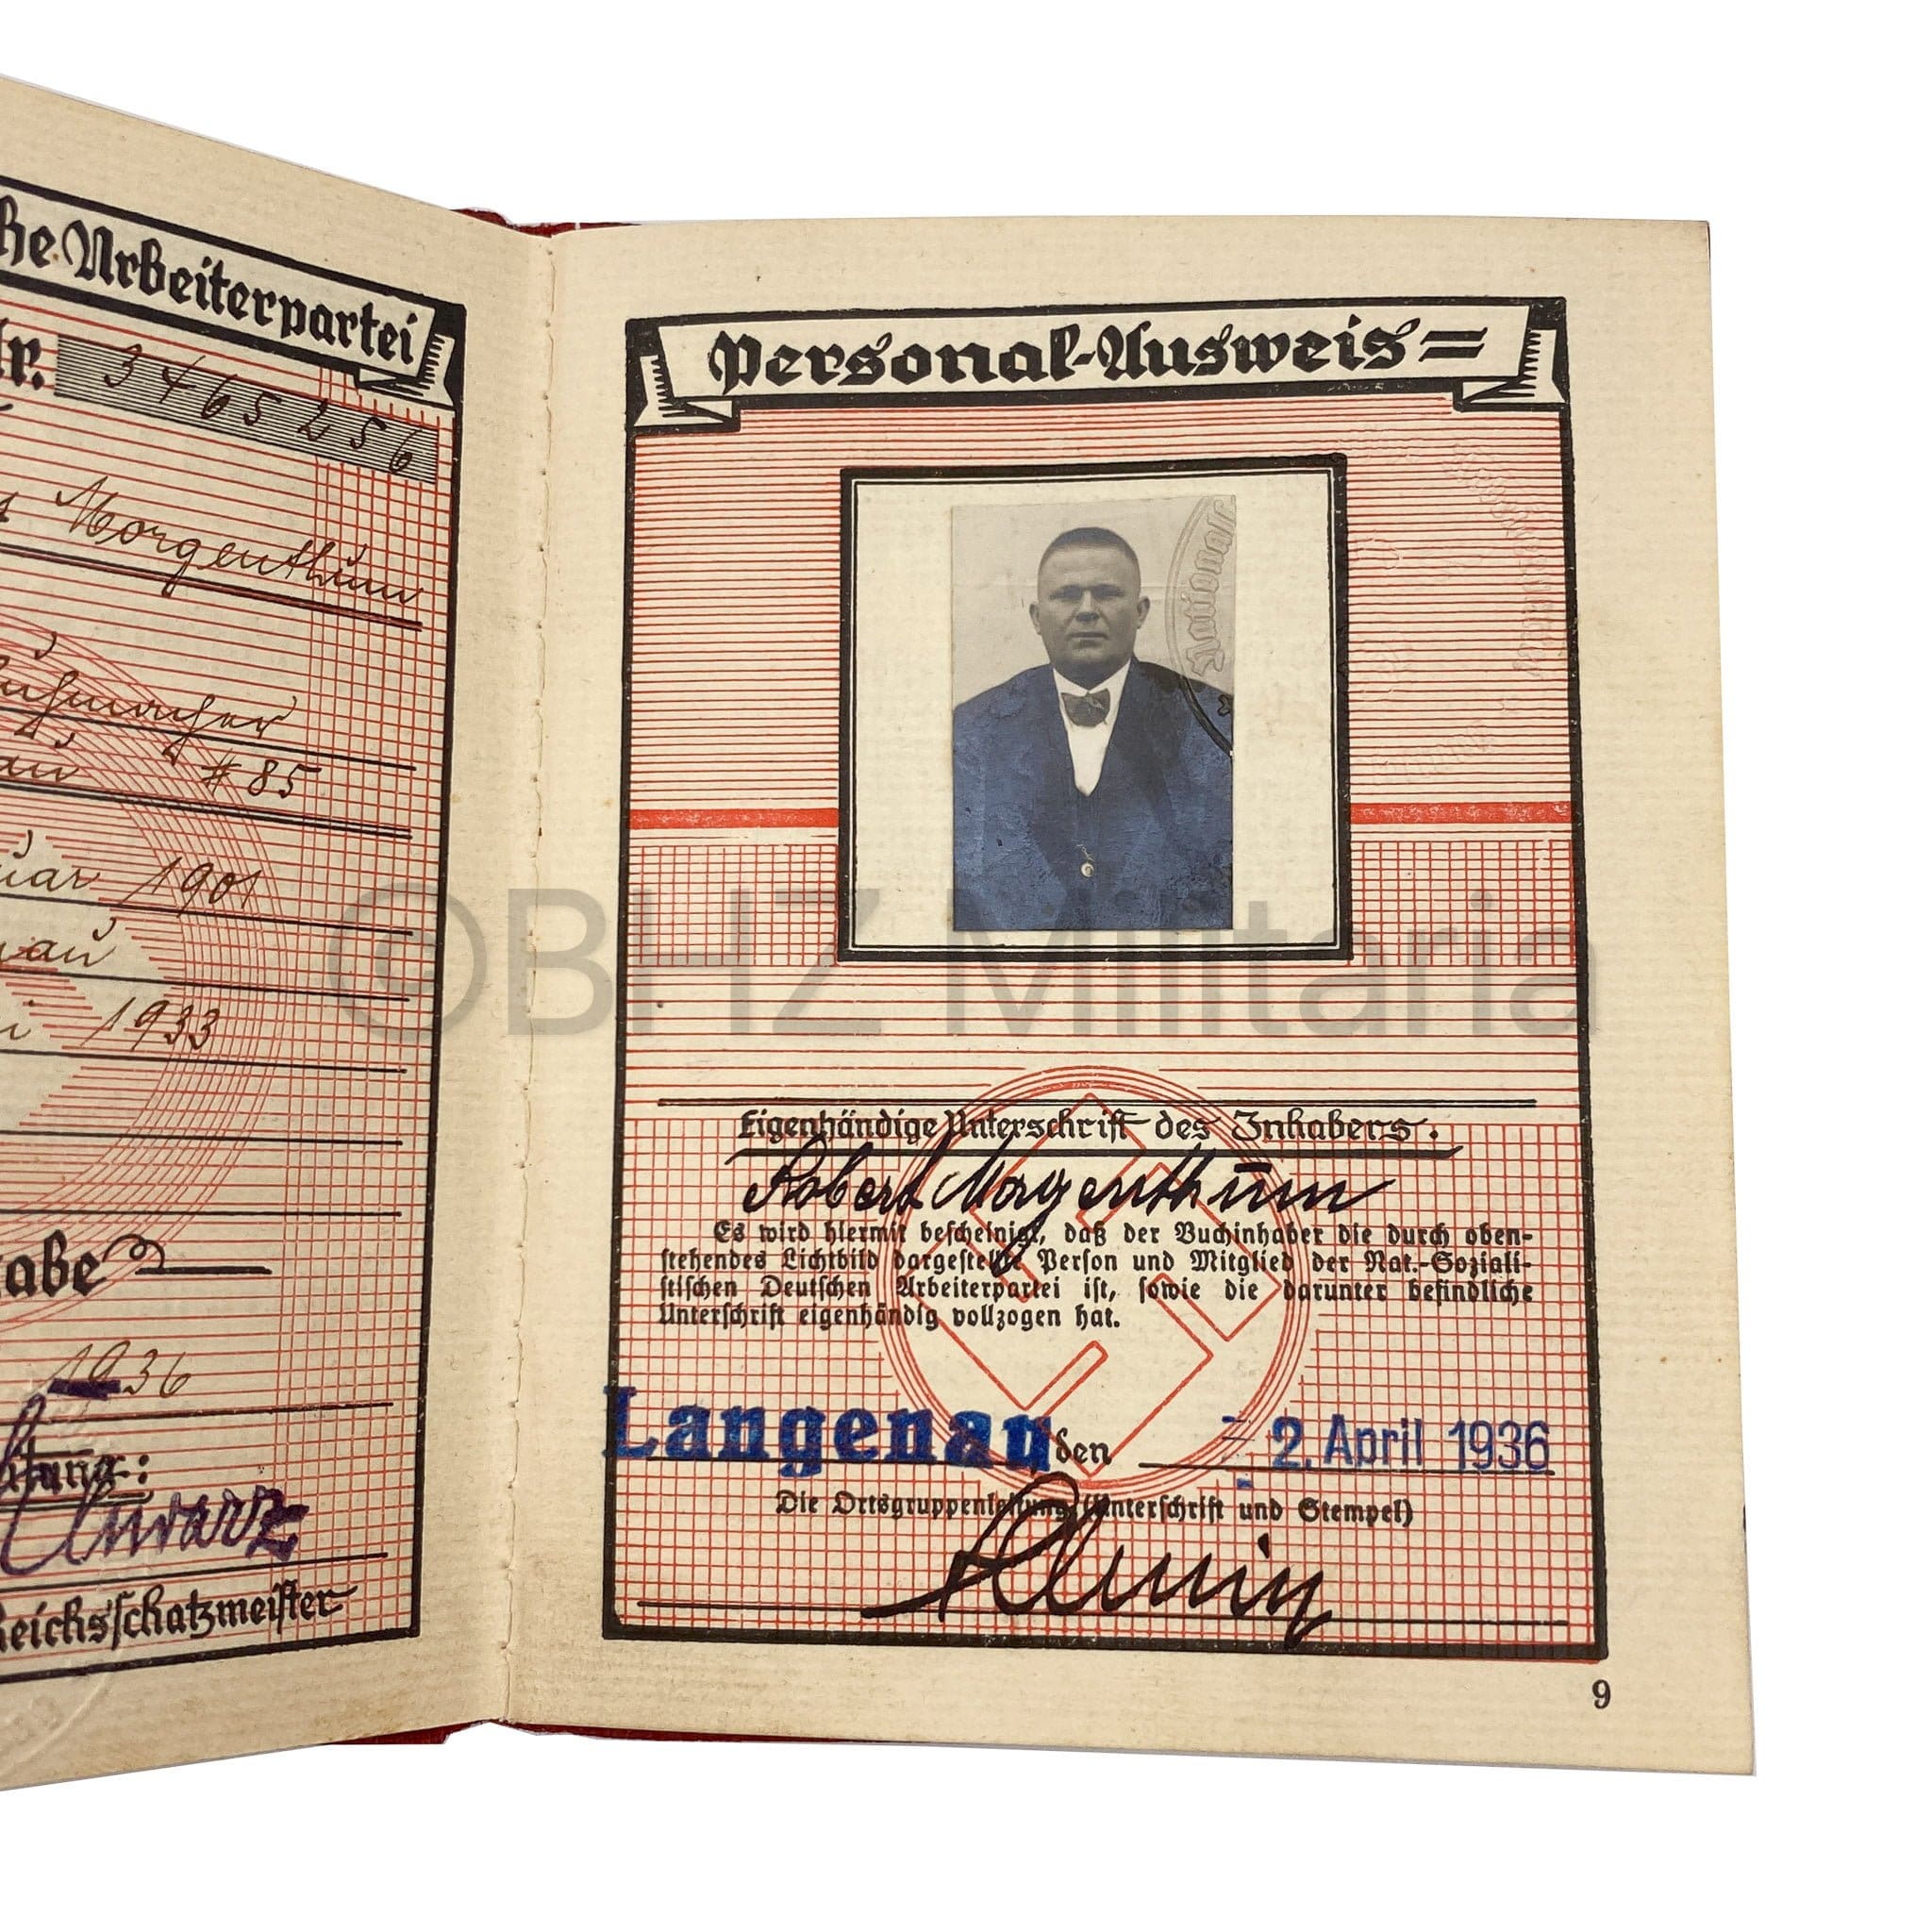 Arbeiterpartei
3465256
Morgenthum
# 85
1901
1933
1936
Schwarz
Reichsschatzmeister
Personal-Ausweis
Nationals
Eigenhändige Unterschrift des Inhabers.
Robert Morgenthum
Es wird hiermit bescheinigt, daß der Buchinhaber die durch oben-
stehendes Lichtbild dargestellte Person und Mitglied der Nat.-Soziali-
stischen Deutschen Arbeiterpartei ist, sowie die darunter befindliche
Unterschrift eigenhändig vollzogen hat.
Langenau den - 2. April 1936
Die Ortsgruppenleitung (Unterschrift und Stempel)
9
©BHZ Militaria